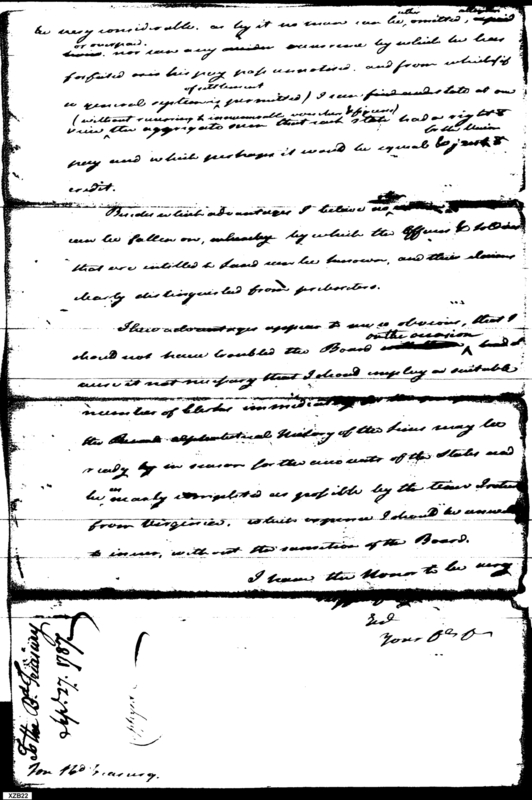 be very considerable. as by it no man can be, omitted,
or overpaid.
nor can any occurrence by which he has
forfeited his pay pass unnoticed. and from which (if
of settlement
a general is permitted) I can find and state at one
(without recurring to innumerable vouchers & figures)
view the aggregate sum that each State had a right to
to the Union
pay and which perhaps it would be equal & just to
credit.
Besides which advantages I believe no other
can be fallen on, whereby by which the Officers & Soldiers
that are entitled to Land can be known, and their claims
clearly distinguished from
These advantages appear to me so obvious, that I
on the occasion
should not have troubled the Board had I
it not necessary that I should employ a suitable
number of Clerks immediately
the alphabetical History of the Lines may be
ready by in season for the accounts of the States and
be as nearly completed as possible by the time I return
from Virginia. which expense I should be
to incur, without the sanction of the Board.
I have the Honor to be very
Your
To the Bd. Treasury
Sept. 27. 1787
Treasury.
XZB22